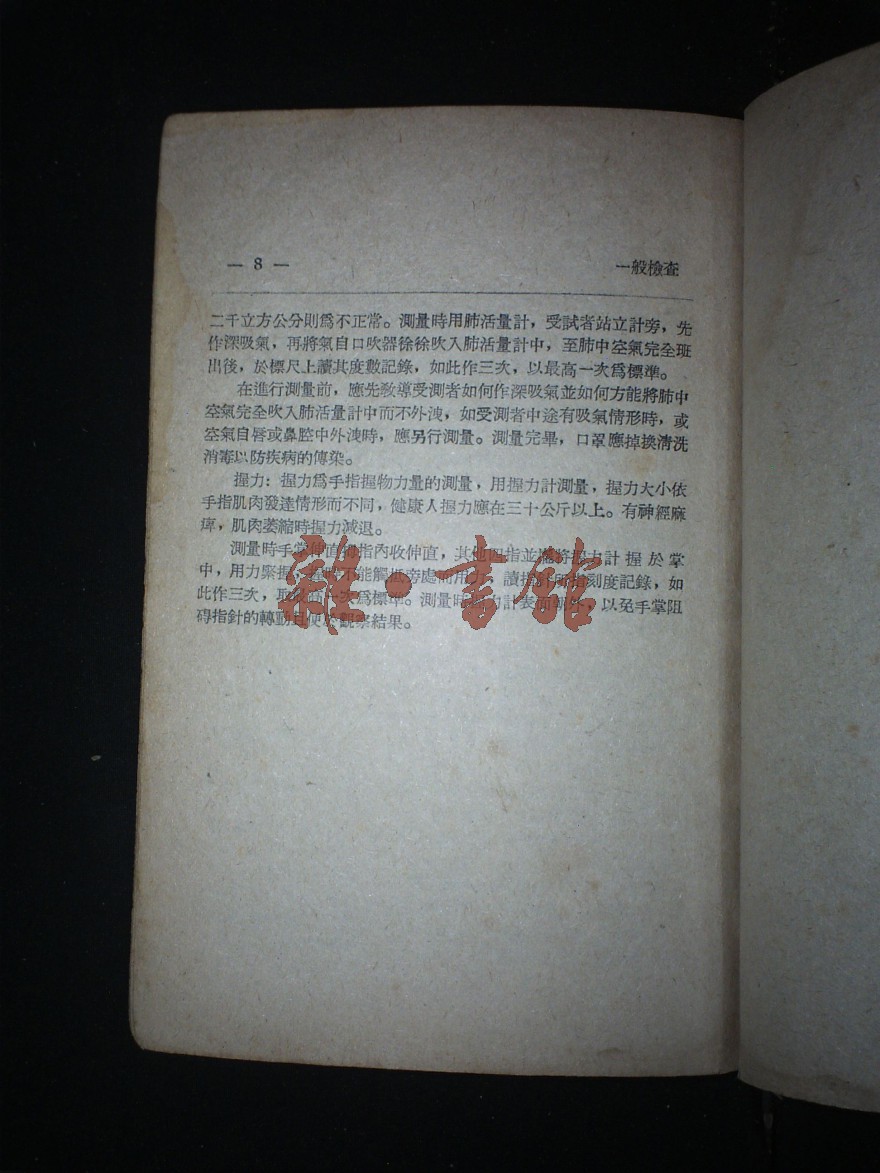 — 8 —
一般檢查
二千立方公分則爲不正常。測量時用肺活量計，受試者站立計旁，先
作深吸氣，再將氣自口吹器徐徐吹入肺活量計中，至肺中空氣完全班
出後，於標尺上讀其度數記錄，如此作三次，以最高一次爲標準。
在進行測量前，應先敎導受測者如何作深吸氣並如何方能將肺中
空氣完全吹入肺活量計中而不外洩，如受測者中途有吸氣情形時，或
空氣自唇或鼻腔中外洩時，應另行測量。測量完畢，口罩應掉換清洗
消毒以防疾病的傳染。
握力：握力爲手指握物力量的測量，用握力計測量，握力大小依
手指肌肉發達情形而不同，健康人握力應在三十公斤以上。有神經麻
痺，肌肉萎縮時握力減退。
測量時手掌伸直拇指內收伸直，其他四指並攏將握力計握於掌
中，用力緊握，不能觸抵旁處而用力，讀指針所指刻度記錄，如
此作三次，取最高一次爲標準。測量時握力計表面朝外，以免手掌阻
碍指針的轉動且便於觀察結果。
雜一書館